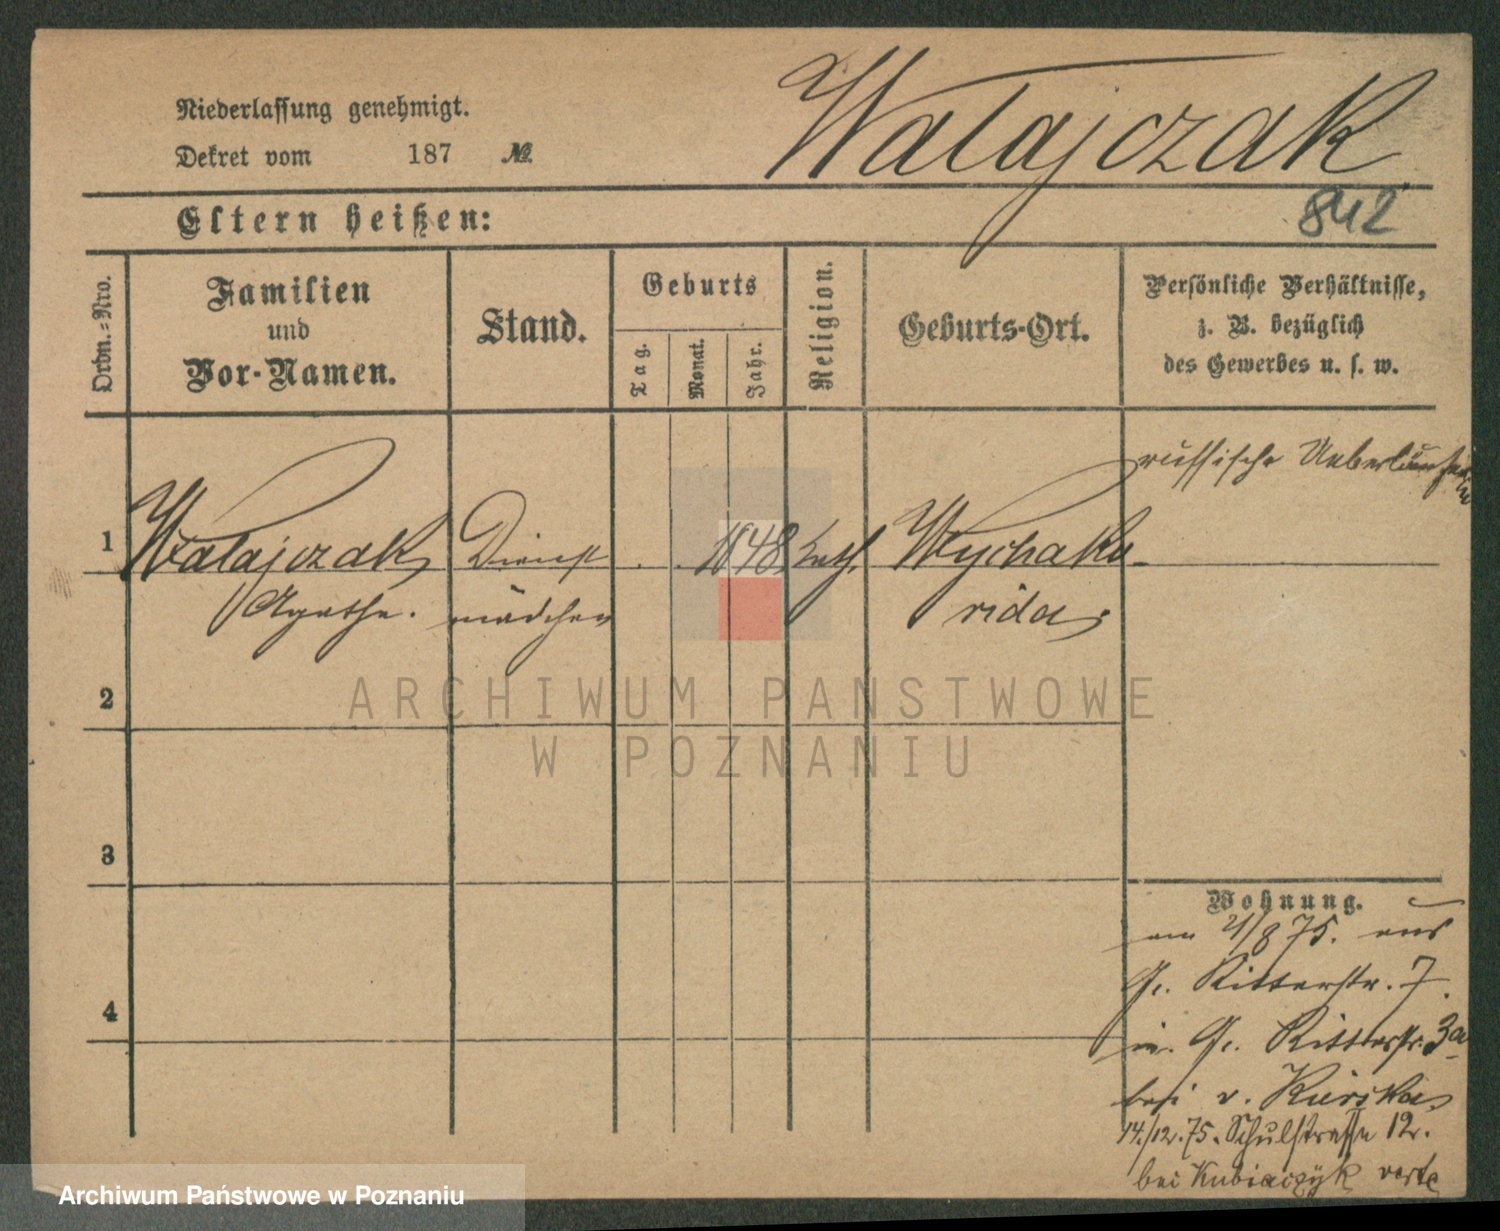 Niederlassung genehmigt.
Dekret vom 187 №
Walajczak
842
Eltern heißen:
Ordn.=Nro.
Familien
und
Vor-Namen.
Stand.
Geburts
Tag.
Monat.
Jahr.
Religion.
Geburts-Ort.
Persönliche Verhältnisse,
z. B. bezüglich
des Gewerbes u. s. w.
russische Ueberläuferin
1 Walajczak Dienst . . 1848 kath. Wychako-
Agathe. mädchen rida
2
ARCHIWUM PANSTWOWE
W POZNANIU
3
Wohnung.
am 2/8 75. aus
Gr. Ritterstr. 7.
4
in Gr. Ritterstr. 3a
bei v. Kurska
14./12.75. Schulstrasse 12.
bei Kubiaczyk verte
Archiwum Państwowe w Poznaniu